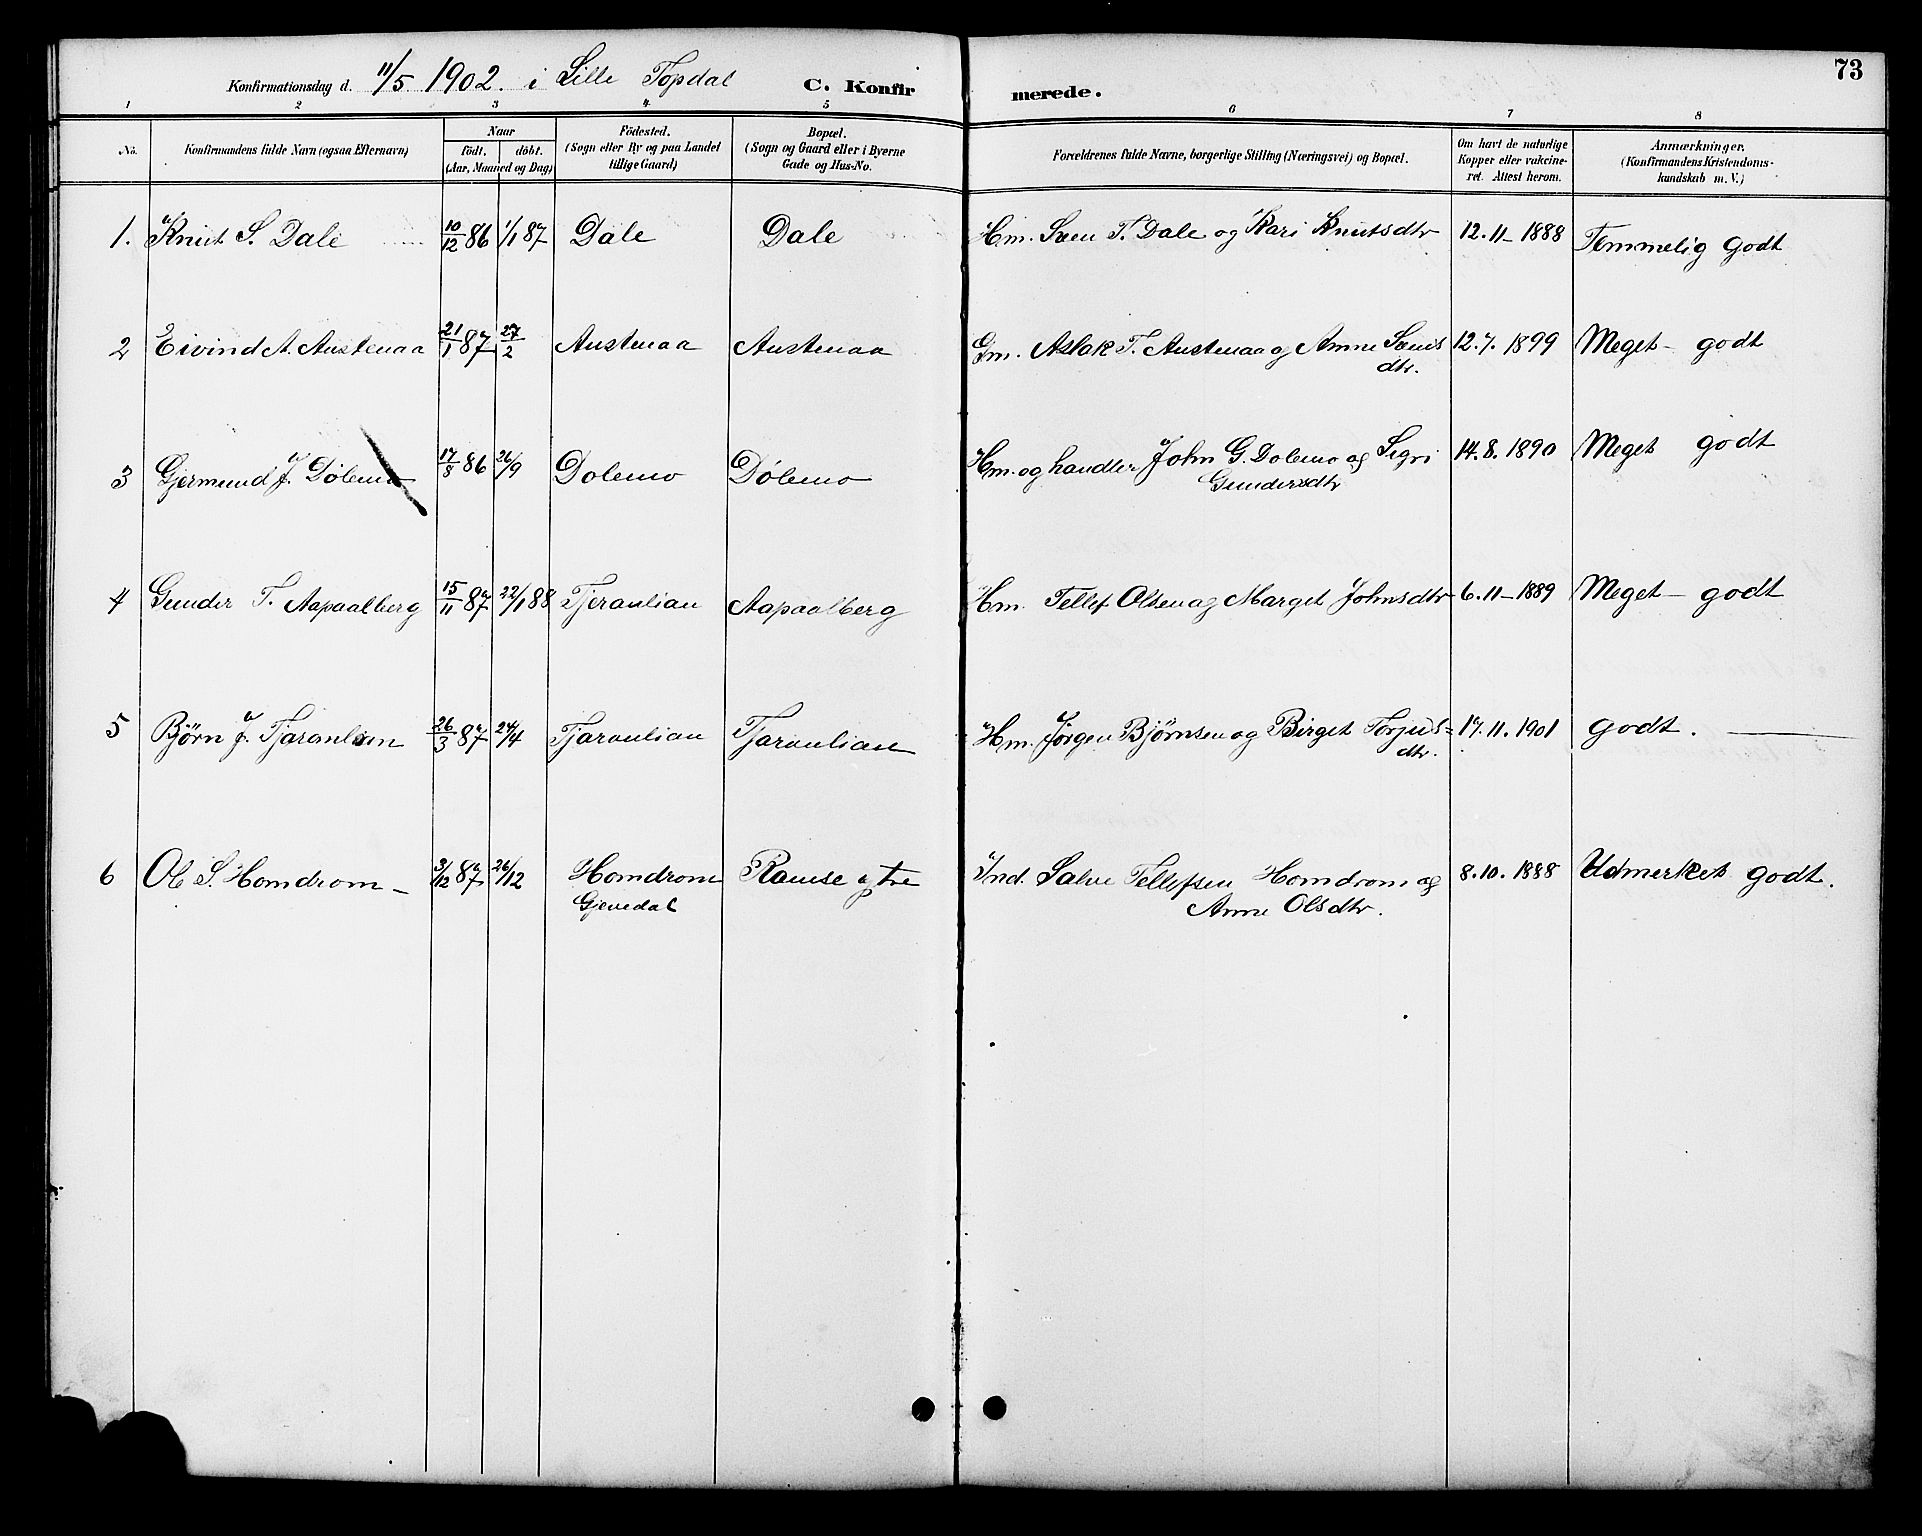 73
Konfirmationsdag d. 11/5 1902. i Lille Topdal C. Konfir merede.
1 2 3 4 5 6 7 8
No. Konfirmandens fulde Navn (ogsaa Efternavn) Naar födt. döbt. (Aar, Maaned og Dag) Födested. (Sogn eller By og paa Landet tillige Gaard) Bopæl. (Sogn og Gaard eller i Byerne Gade og Hus-No. Forældrenes fulde Navne, borgerlige Stilling (Næringsvei) og Bopæl. Om havt de naturlige Kopper eller vaccineret. Attest herom. Anmærkninger. (Konfirmandens Kristendomskundskab m. V.)
1. Knut S. Dale 10/12 86 1/1 87 Dale Dale Hm. Sven T. Dale og Kari Knutsdtr 12.11-1888 Temmelig godt
2 Eivind A. Austenaa 21/1 87 27/2 Austenaa Austenaa Gm. Aslak T. Austenaa og Anne Svens
dtr. 12.7. 1899 Meget - godt
3 Gjermund J. Dölemo 17/8 86 26/9 Dolemo Dölemo Hm. og handler John G. Dolemo og Sigri
Gundersdtr 14.8. 1890 Meget godt
4 Gunder T. Aapaalberg 15/11 87 22/1 88 Tjeraulian Aapaalberg Hm. Tellef Olsen og Marget Johnsdtr 6.11-1889 Meget - godt
5 Björn J. Tjaraulian 26/3 87 24/4 Tjaraulian Tjaraulian Hm. Jörgen Björnsen og Birget Torjus=
dtr. 17.11. 1901 godt.
6 Ole S. Homdrom - 3/12 87 26/12 Homdrom
Gjevedal Ramse
Ind. Salve Tellefsen Homdrom og
Anne Olsdtr. 8.10. 1888 Udmerket godt.